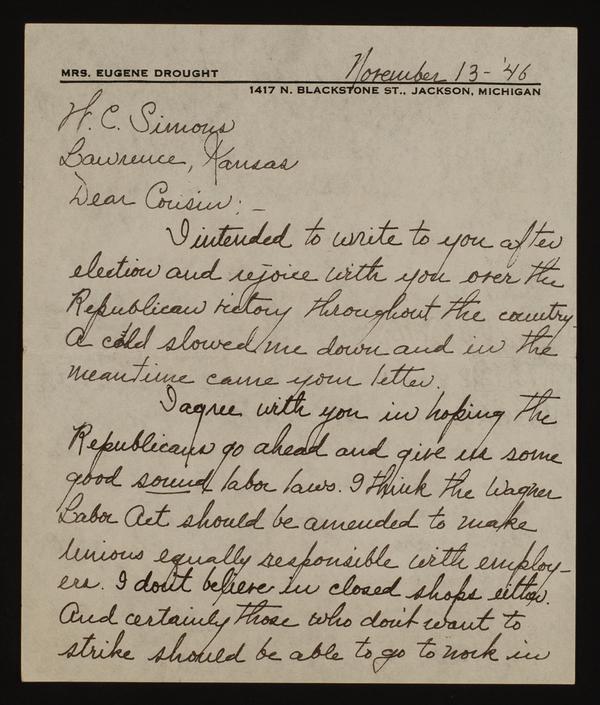 November 13-'46
MRS. EUGENE DROUGHT
1417 N. BLACKSTONE ST., JACKSON, MICHIGAN
H. C. Simons
Lawrence, Kansas
Dear Cousin:-
I intended to write to you after
election and rejoice with you over the
Republican victory throughout the country.
A cold slowed me down and in the
meantime came your letter.
I agree with you in hoping the
Republicans go ahead and give us some
good sound labor laws. I think the Wagner
Labor Act should be amended to make
Unions equally responsible with employ-
ers. I don't believe in closed shops either.
And certainly those who don't want to
strike should be able to go to work in